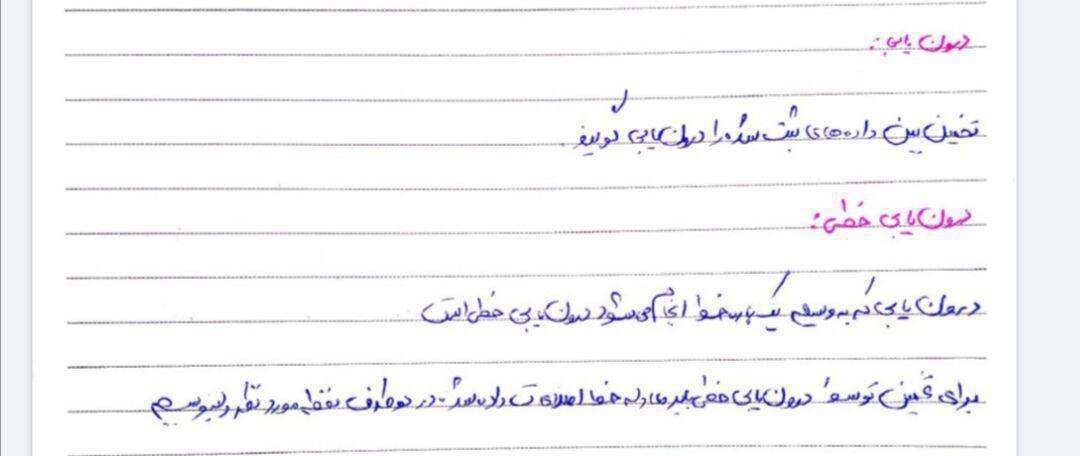 درون یابی:
تخمین بین داده‌های ثبت شده را درون یابی گویند.
درون یابی خطی:
درون یابی که به وسیله یک پاره خط انجام می‌شود درون یابی خطی است
برای تخمین توسط درون یابی خطی باید معادله خط اطلاعات داده شده در دو طرف نقطه مورد نظر را بنویسیم